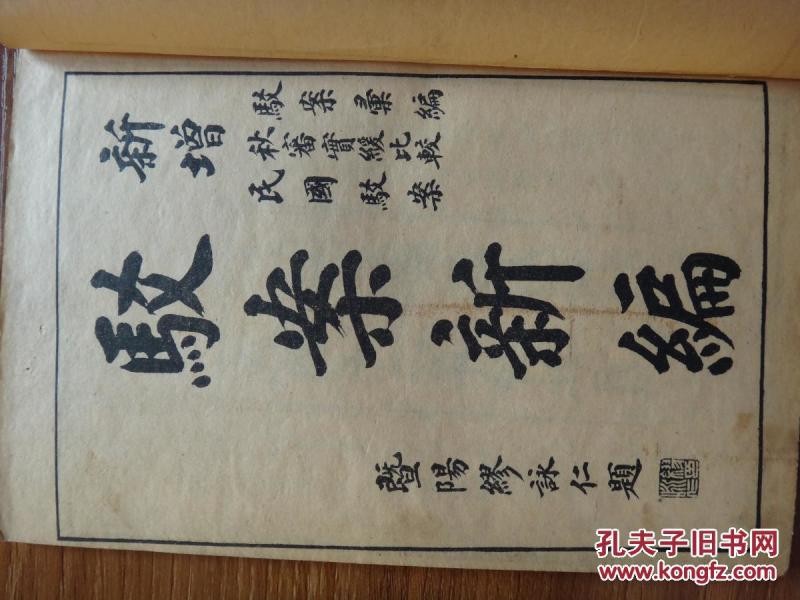 新增
駁案彙編
秋審實緩比較
民國駁案
駁案新編
暨陽繆詠仁題
孔夫子旧书网
www.kongfz.com